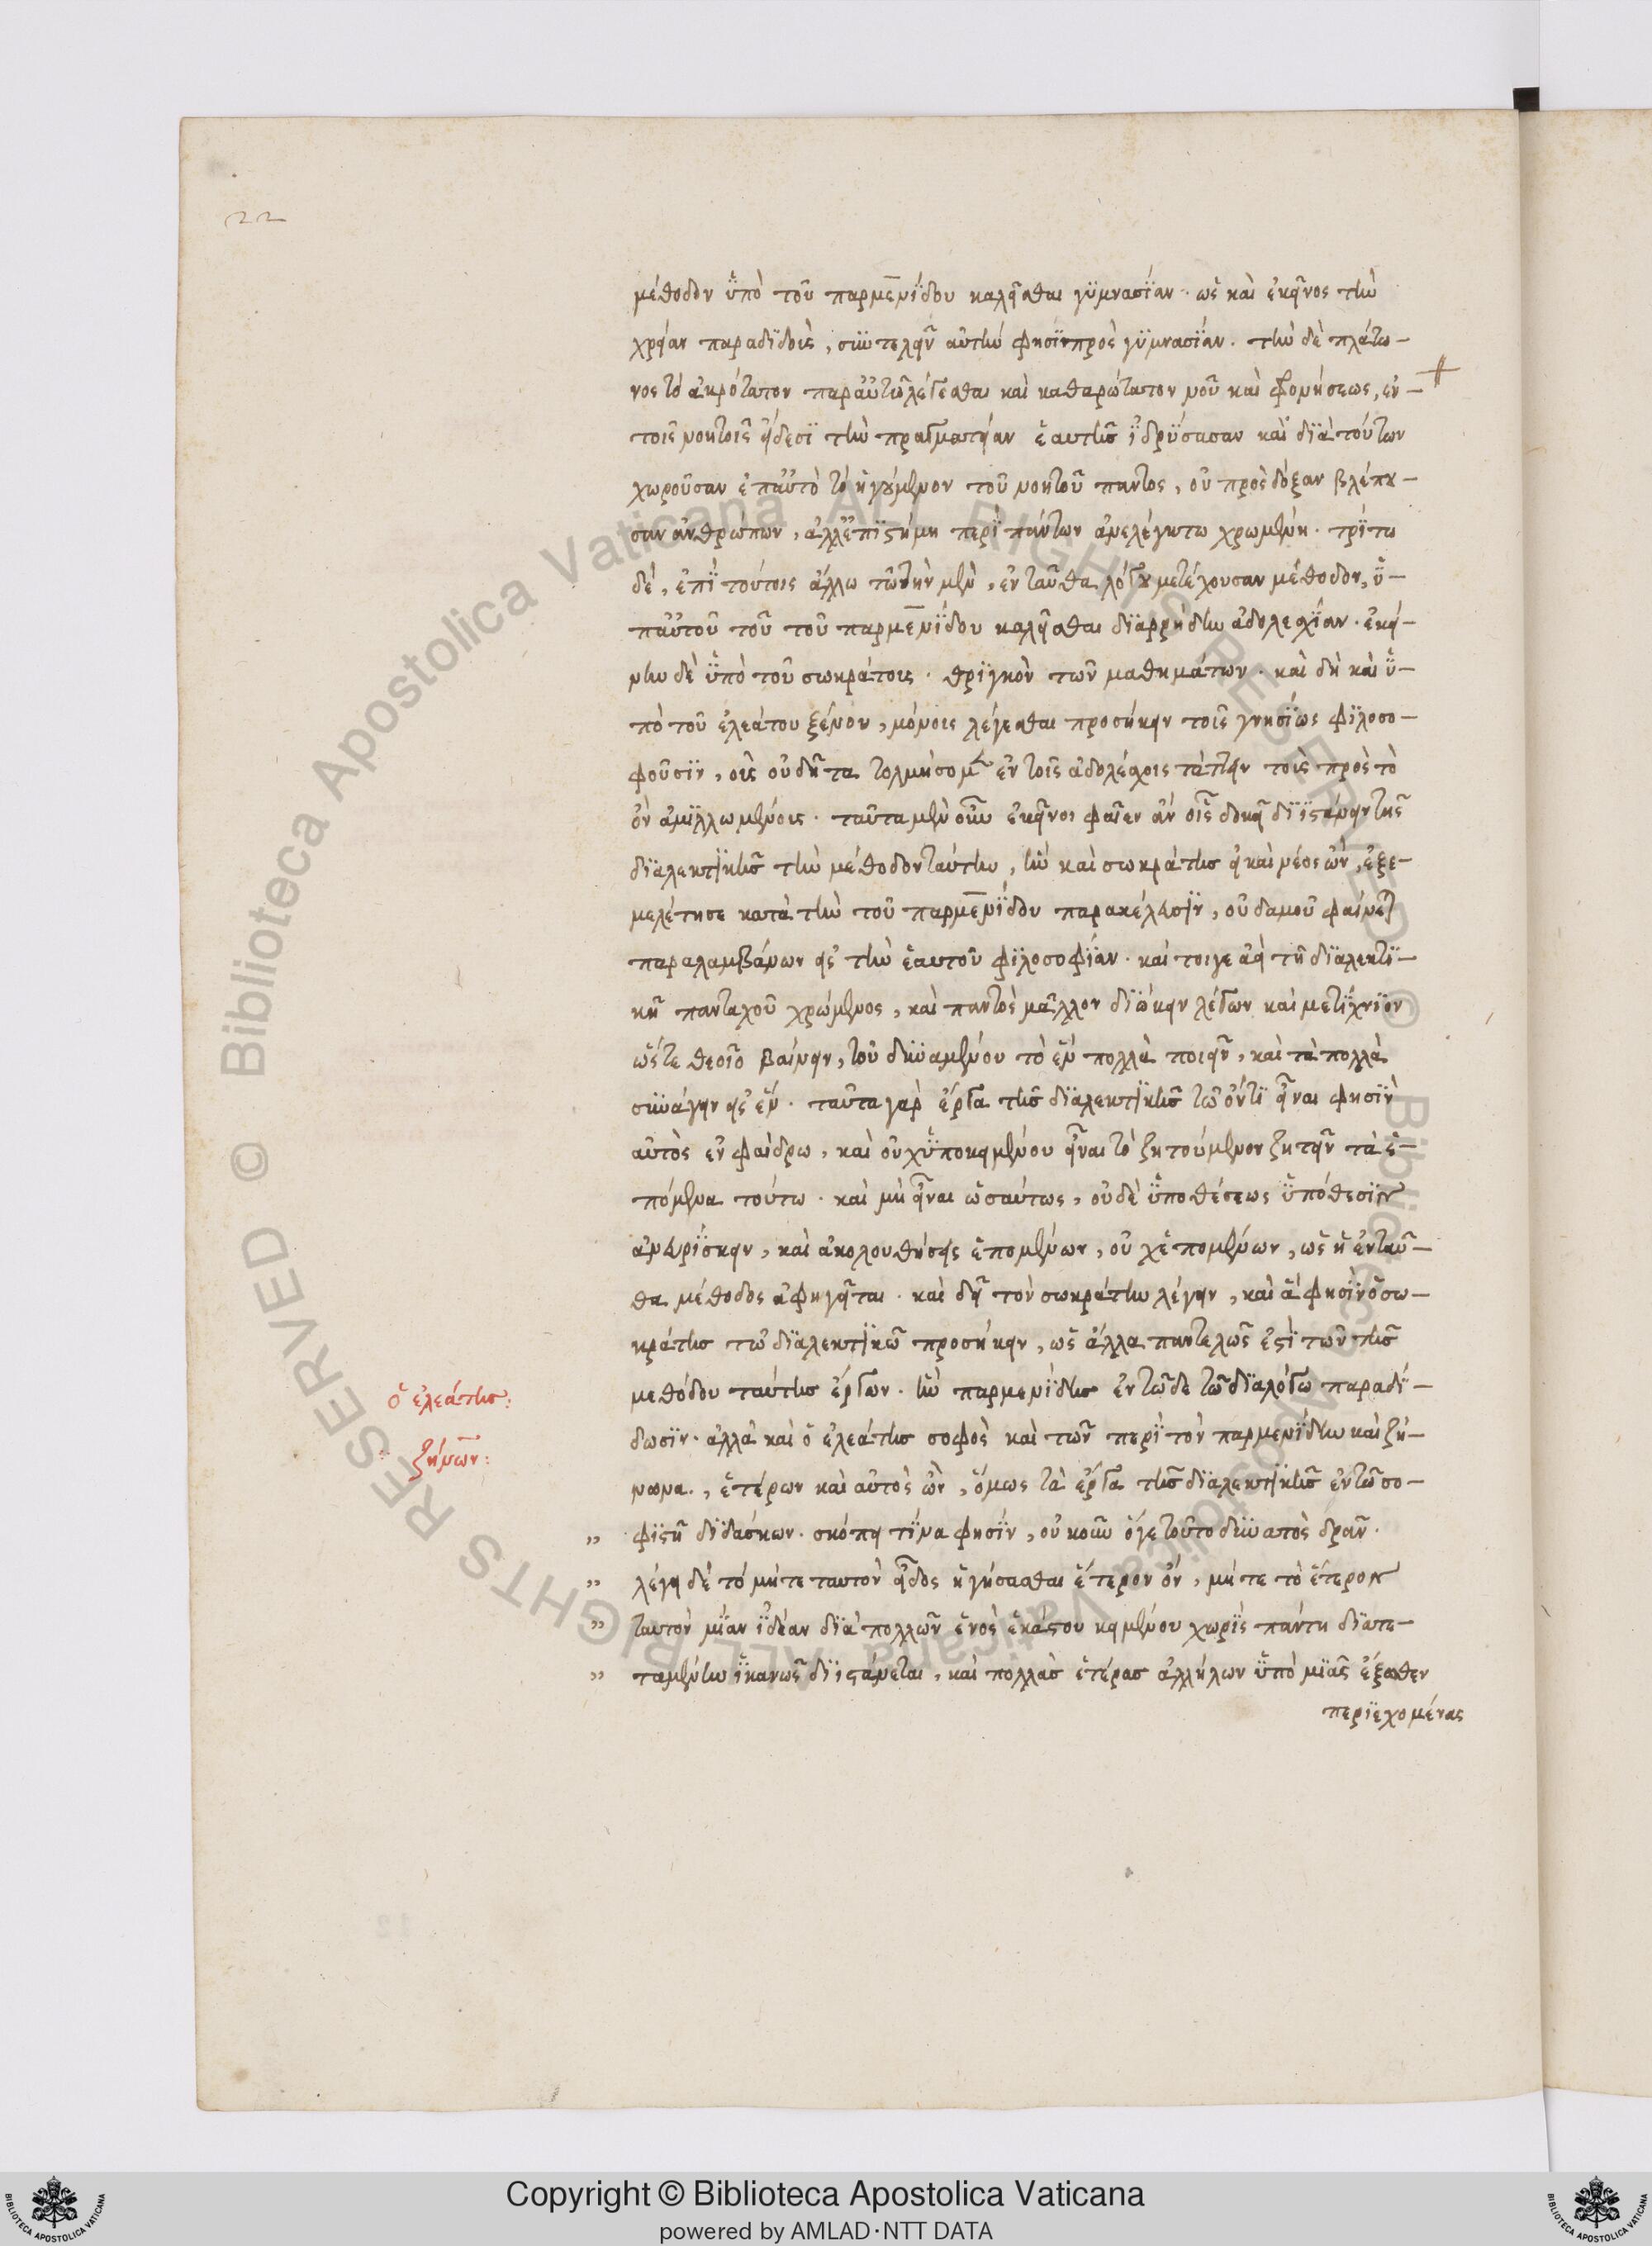 22
μέθοδον ὑπὸ τοῦ παρμενίδου καλεῖσθαι γυμνασίαν· ὡς καὶ ἐκεῖνος τὴν
χρείαν παραδιδοὺς, συντελεῖν αὐτήν φησὶ πρὸς γυμνασίαν. τὴν δὲ πλάτω-
νος τὸ ἀκρότατον παρ' αὐτῶ λέγεσθαι καὶ καθαρώτατον νοῦ καὶ φρονήσεως, ἐν-
τοῖς νοητοῖς εἴδεσι τὴν πραγματείαν ἑαυτῆς ἱδρύσασαν καὶ διὰ τούτων
χωροῦσαν ἐπ' αὐτὸ τὸ ἡγούμενον τοῦ νοητοῦ παντος, οὐ πρὸς δόξαν βλέπου-
σαν ἀνθρώπων, ἀλλ' ἐπιστήμη περὶ πάντων ἀνελέγκτω χρωμένη. τρίτω
δέ, ἐπὶ τούτοις ἄλλω τῶ τὴν μὲν, ἐνταῦθα λόγου μετέχουσαν μέθοδον, ὑ-
π' αὐτοῦ τοῦ τοῦ παρμενίδου καλεῖσθαι διαρρήδην ἀδολεσχίαν. ἐκεί-
νην δὲ ὑπὸ τοῦ σωκράτους· θριγκὸν τῶν μαθημάτων· καὶ δὴ καὶ ὑ-
πὸ τοῦ ἐλεάτου ξένου, μόνοις λέγεσθαι προσήκειν τοῖς γνησίως φιλοσο-
φοῦσιν, οὓς οὐδῆτα τολμήσομεν ἐν τοῖς ἀδολέσχοις τάττειν τοὺς πρὸς τὸ
ὂν ἀμιλλωμένους. ταῦτα μὲν οὖν ἐκεῖνοι φαῖεν ἂν οἷς δοκεῖ διϊστάνειν τῆς
διαλεκτικῆς τὴν μέθοδον ταύτην, ἣν καὶ σωκράτης εἰ καὶ νέος ὢν, ἐξε-
μελέτησε κατὰ τὴν τοῦ παρμενίδου παρακέλευσιν, οὐδαμοῦ φαίνεται
παραλαμβάνων εἰς τὴν ἑαυτοῦ φιλοσοφίαν· καί τοιγε ἀεὶ τῆ διαλεκτι-
κῆ πανταχοῦ χρώμενος, καὶ παντὸς μᾶλλον διώκειν λέγων καὶ μετίχνιον
ὥστε θεοῖο βαίνειν, τοῦ δυναμένου τὸ ἓν πολλὰ ποιεῖν, καὶ τὰ πολλὰ
συνάγειν εἰς ἕν. ταῦτα γὰρ ἔργα τῆς διαλεκτικῆς τῶ ὄντι εἶναι φησὶν
αὐτὸς ἐν φαίδρω, καὶ οὐχ ὑποκειμένου εἶναι τὸ ζητούμενον ζητεῖν τὰ ἑ-
πόμενα τούτω· καὶ μὴ εἶναι ὡσαύτως, οὐδὲ ὑποθέσεως ὑπόθεσιν
ἀνευρίσκειν, καὶ ἀκολουθήσεις ἑπομένων, οὐχ ἑπομένων, ὡς ἡ ἐνταῦ-
θα μέθοδος ἀφηγεῖται. καὶ δεῖ τὸν σωκράτην λέγειν, καὶ ἅ φησὶν ὁ σω-
κράτης τῶ διαλεκτικῶ προσήκειν, ὡς ἄλλα παντελῶς ἐστὶ τῶν τῆς
μεθόδου ταύτης ἔργων. ἣν παρμενίδης ἐν τῶδε τῶ διαλόγω παραδί-
ὁ ἐλεάτης:
δωσιν· ἀλλὰ καὶ ὁ ἐλεάτης σοφὸς καὶ τῶν περὶ τὸν παρμενίδην καὶ ζή-
ζήνων:
νωνα, ἑτέρων καὶ αὐτὸς ὢν, ὅμως τὰ ἔργα τῆς διαλεκτικῆς ἐν τῶ σο-
" φιστῆ διδάσκων. σκόπει τίνα φησίν, οὐκοῦν ὅγε τοῦτο δυνατὸς δρᾶν.
" λέγει δὲ τὸ μήτε ταυτὸν εἶδος ἡγήσασθαι ἕτερον ὄν, μήτε τὸ ἕτερον
" ταυτὸν μίαν ἰδέαν διὰ πολλῶν ἑνὸς ἑκάστου κειμένου χωρὶς πάντη διατε-
" ταμένην ἱκανῶς διϊστάνεται, καὶ πολλὰς ἑτέρας ἀλλήλων ὑπὸ μιᾶς ἔξωθεν
περιεχομένας
© Biblioteca Apostolica Vaticana ALL RIGHTS RESERVED
© Biblioteca Apostolica Vaticana ALL RIGHTS RESERVED
Copyright © Biblioteca Apostolica Vaticana
powered by AMLAD·NTT DATA
BIBLIOTECA APOSTOLICA VATICANA
BIBLIOTECA APOSTOLICA VATICANA